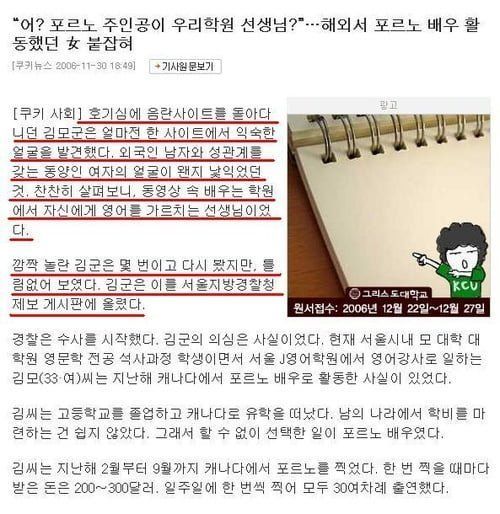 “어? 포르노 주인공이 우리학원 선생님?”…해외서 포르노 배우 활
동했던 女 붙잡혀
[쿠키뉴스 2006-11-30 18:49]
기사원문보기
[쿠키 사회] 호기심에 음란사이트를 돌아다
니던 김모군은 얼마전 한 사이트에서 익숙한
얼굴을 발견했다. 외국인 남자와 성관계를
갖는 동양인 여자의 얼굴이 왠지 낯익었던
것. 찬찬히 살펴보니, 동영상 속 배우는 학원
에서 자신에게 영어를 가르치는 선생님이었
다.
광고
KCU
그리스도대학교
원서접수: 2006년 12월 22일~12월 27일
깜짝 놀란 김군은 몇 번이고 다시 봤지만, 틀
림없어 보였다. 김군은 이를 서울지방경찰청
제보 게시판에 올렸다.
경찰은 수사를 시작했다. 김군의 의심은 사실이었다. 현재 서울시내 모 대학 대
학원 영문학 전공 석사과정 학생이면서 서울 J영어학원에서 영어강사로 일하는
김모(33·여)씨는 지난해 캐나다에서 포르노 배우로 활동한 사실이 있었다.
김씨는 고등학교를 졸업하고 캐나다로 유학을 떠났다. 남의 나라에서 학비를 마
련하는 건 쉽지 않았다. 그래서 할 수 없이 선택한 일이 포르노 배우였다.
김씨는 지난해 2월부터 9월까지 캐나다에서 포르노를 찍었다. 한 번 찍을 때마다
받은 돈은 200~300달러. 일주일에 한 번씩 찍어 모두 30여차례 출연했다.